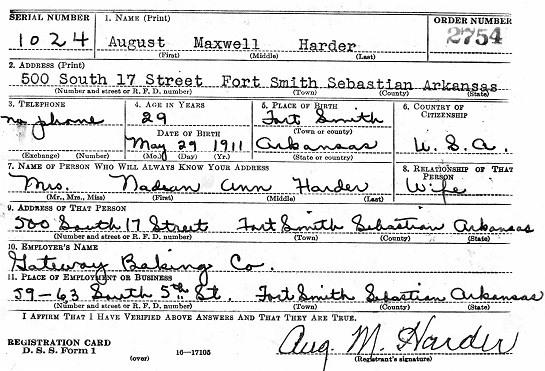 SERIAL NUMBER 1. NAME (Print) ORDER NUMBER
1024 August Maxwell Harder 2754
(First) (Middle) (Last)
2. ADDRESS (Print)
500 South 17 Street Fort Smith Sebastian Arkansas
(Number and street or R. F. D. number) (Town) (County) (State)
3. TELEPHONE 4. AGE IN YEARS 5. PLACE OF BIRTH 6. COUNTRY OF CITIZENSHIP
no phone 29 Fort Smith
(Town or county)
DATE OF BIRTH
May 29 1911 Arkansas U. S. A.
(Exchange) (Number) (Mo.) (Day) (Yr.) (State or country)
7. NAME OF PERSON WHO WILL ALWAYS KNOW YOUR ADDRESS 8. RELATIONSHIP OF THAT PERSON
Mrs. Ann Harder Wife
(Mr., Mrs., Miss) (First) (Middle) (Last)
9. ADDRESS OF THAT PERSON
500 South 17 Street Fort Smith Sebastian Arkansas
(Number and street or R. F. D. number) (Town) (County) (State)
10. EMPLOYER'S NAME
Gateway Baking Co.
11. PLACE OF EMPLOYMENT OR BUSINESS
59-63 South 5th St. Fort Smith Sebastian Arkansas
(Number and street or R. F. D. number) (Town) (County) (State)
I AFFIRM THAT I HAVE VERIFIED ABOVE ANSWERS AND THAT THEY ARE TRUE.
REGISTRATION CARD
D. S. S. Form 1 (over) 16—17105 Aug. M. Harder
(Registrant's signature)